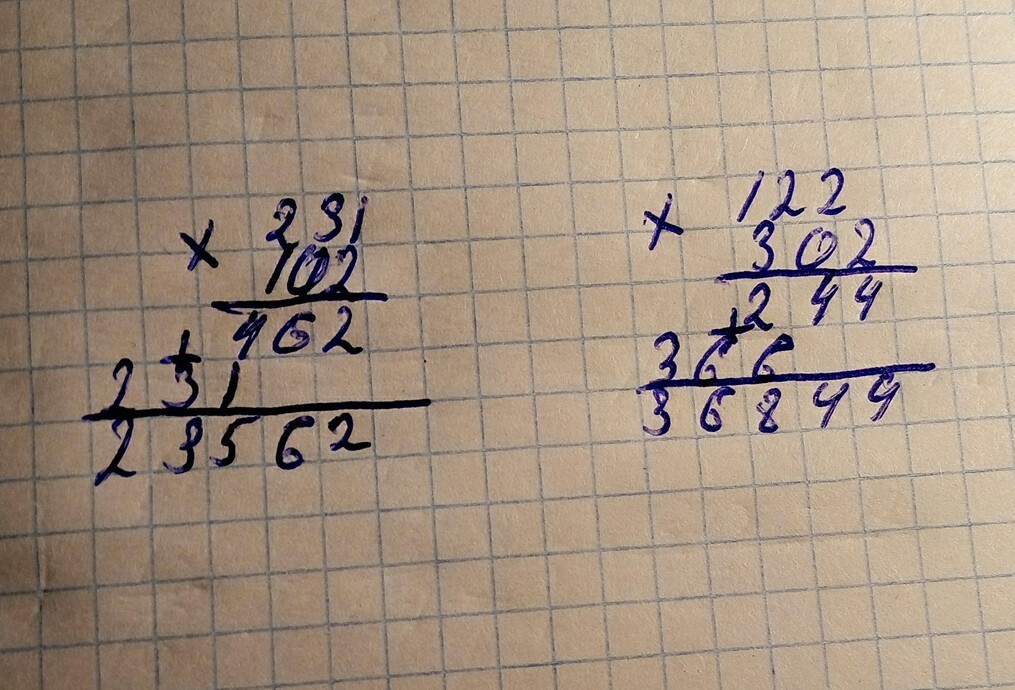 × 231
102
462
+
231
23562
× 122
302
244
+
366
36844